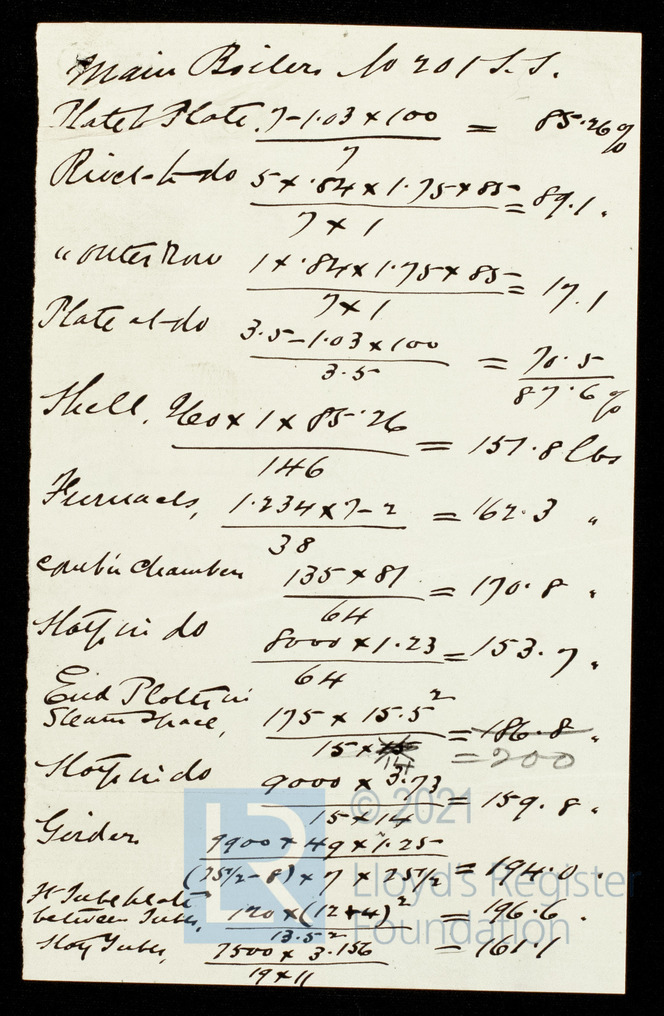 Main Boilers No 201 S.S.
Plate to Plate. 7-1.03 x 100 / 7 = 85.26%
Rivet to do 5 x .84 x 1.75 x 85 / 7 x 1 = 89.1 "
" outer Row 1 x .84 x 1.75 x 85 / 7 x 1 = 17.1
Plate at do 3.5-1.03 x 100 / 3.5 = 70.5
87.6%
Shell. 260 x 1 x 85.26 / 146 = 151.8 lbs
Furnaces, 1.234 x 7-2 / 38 = 162.3 "
Comb'n Chambers 135 x 81 / 64 = 170.8 "
Stays in do 8000 x 1.23 / 64 = 153.7 "
End Plates in
Steam Space, 175 x 15.5² / 15 x 14 = 186.8 "
= 200
Stays in do 9000 x 3.73 / 15 x 14 = 159.8 "
Girders 9900 x 49 x 1.25 / (25 1/2 - 8) x 7 x 25 1/2 = 194.0 "
Ft Tube plate
between Tubes, 120 x (12+4)² / 13.5² = 196.6 "
Stay Tubes, 7500 x 3.156 / 19 x 11 = 161.1
© 2021
LR
Lloyd's Register
Foundation